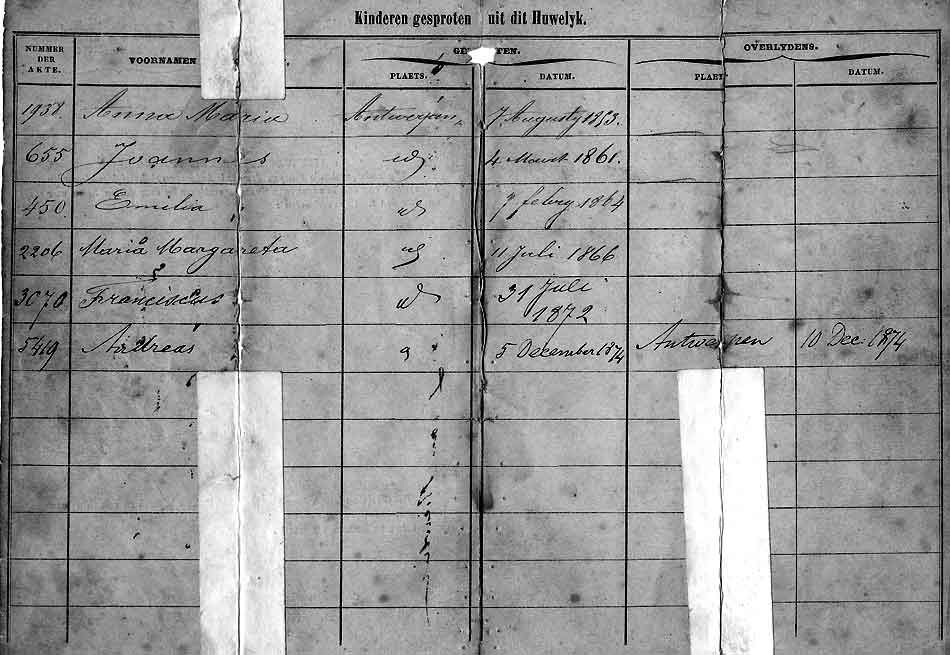 Kinderen gesproten uit dit Huwelyk.
NUMMER DER AKTE. VOORNAMEN OVERLYDENS.
PLAETS. DATUM. DATUM.
Anna Maria Antwerpen 7 Augusty
655 Joannes id: 4 Maart 1861.
450 Emilia id 7 febry 1864
2206 Maria Margareta id 11 Juli 1866
3070 Franciscus id 31 Juli
1872
5419 Andreas 5 December 1874 Antwerpen 10 Dec: 1874